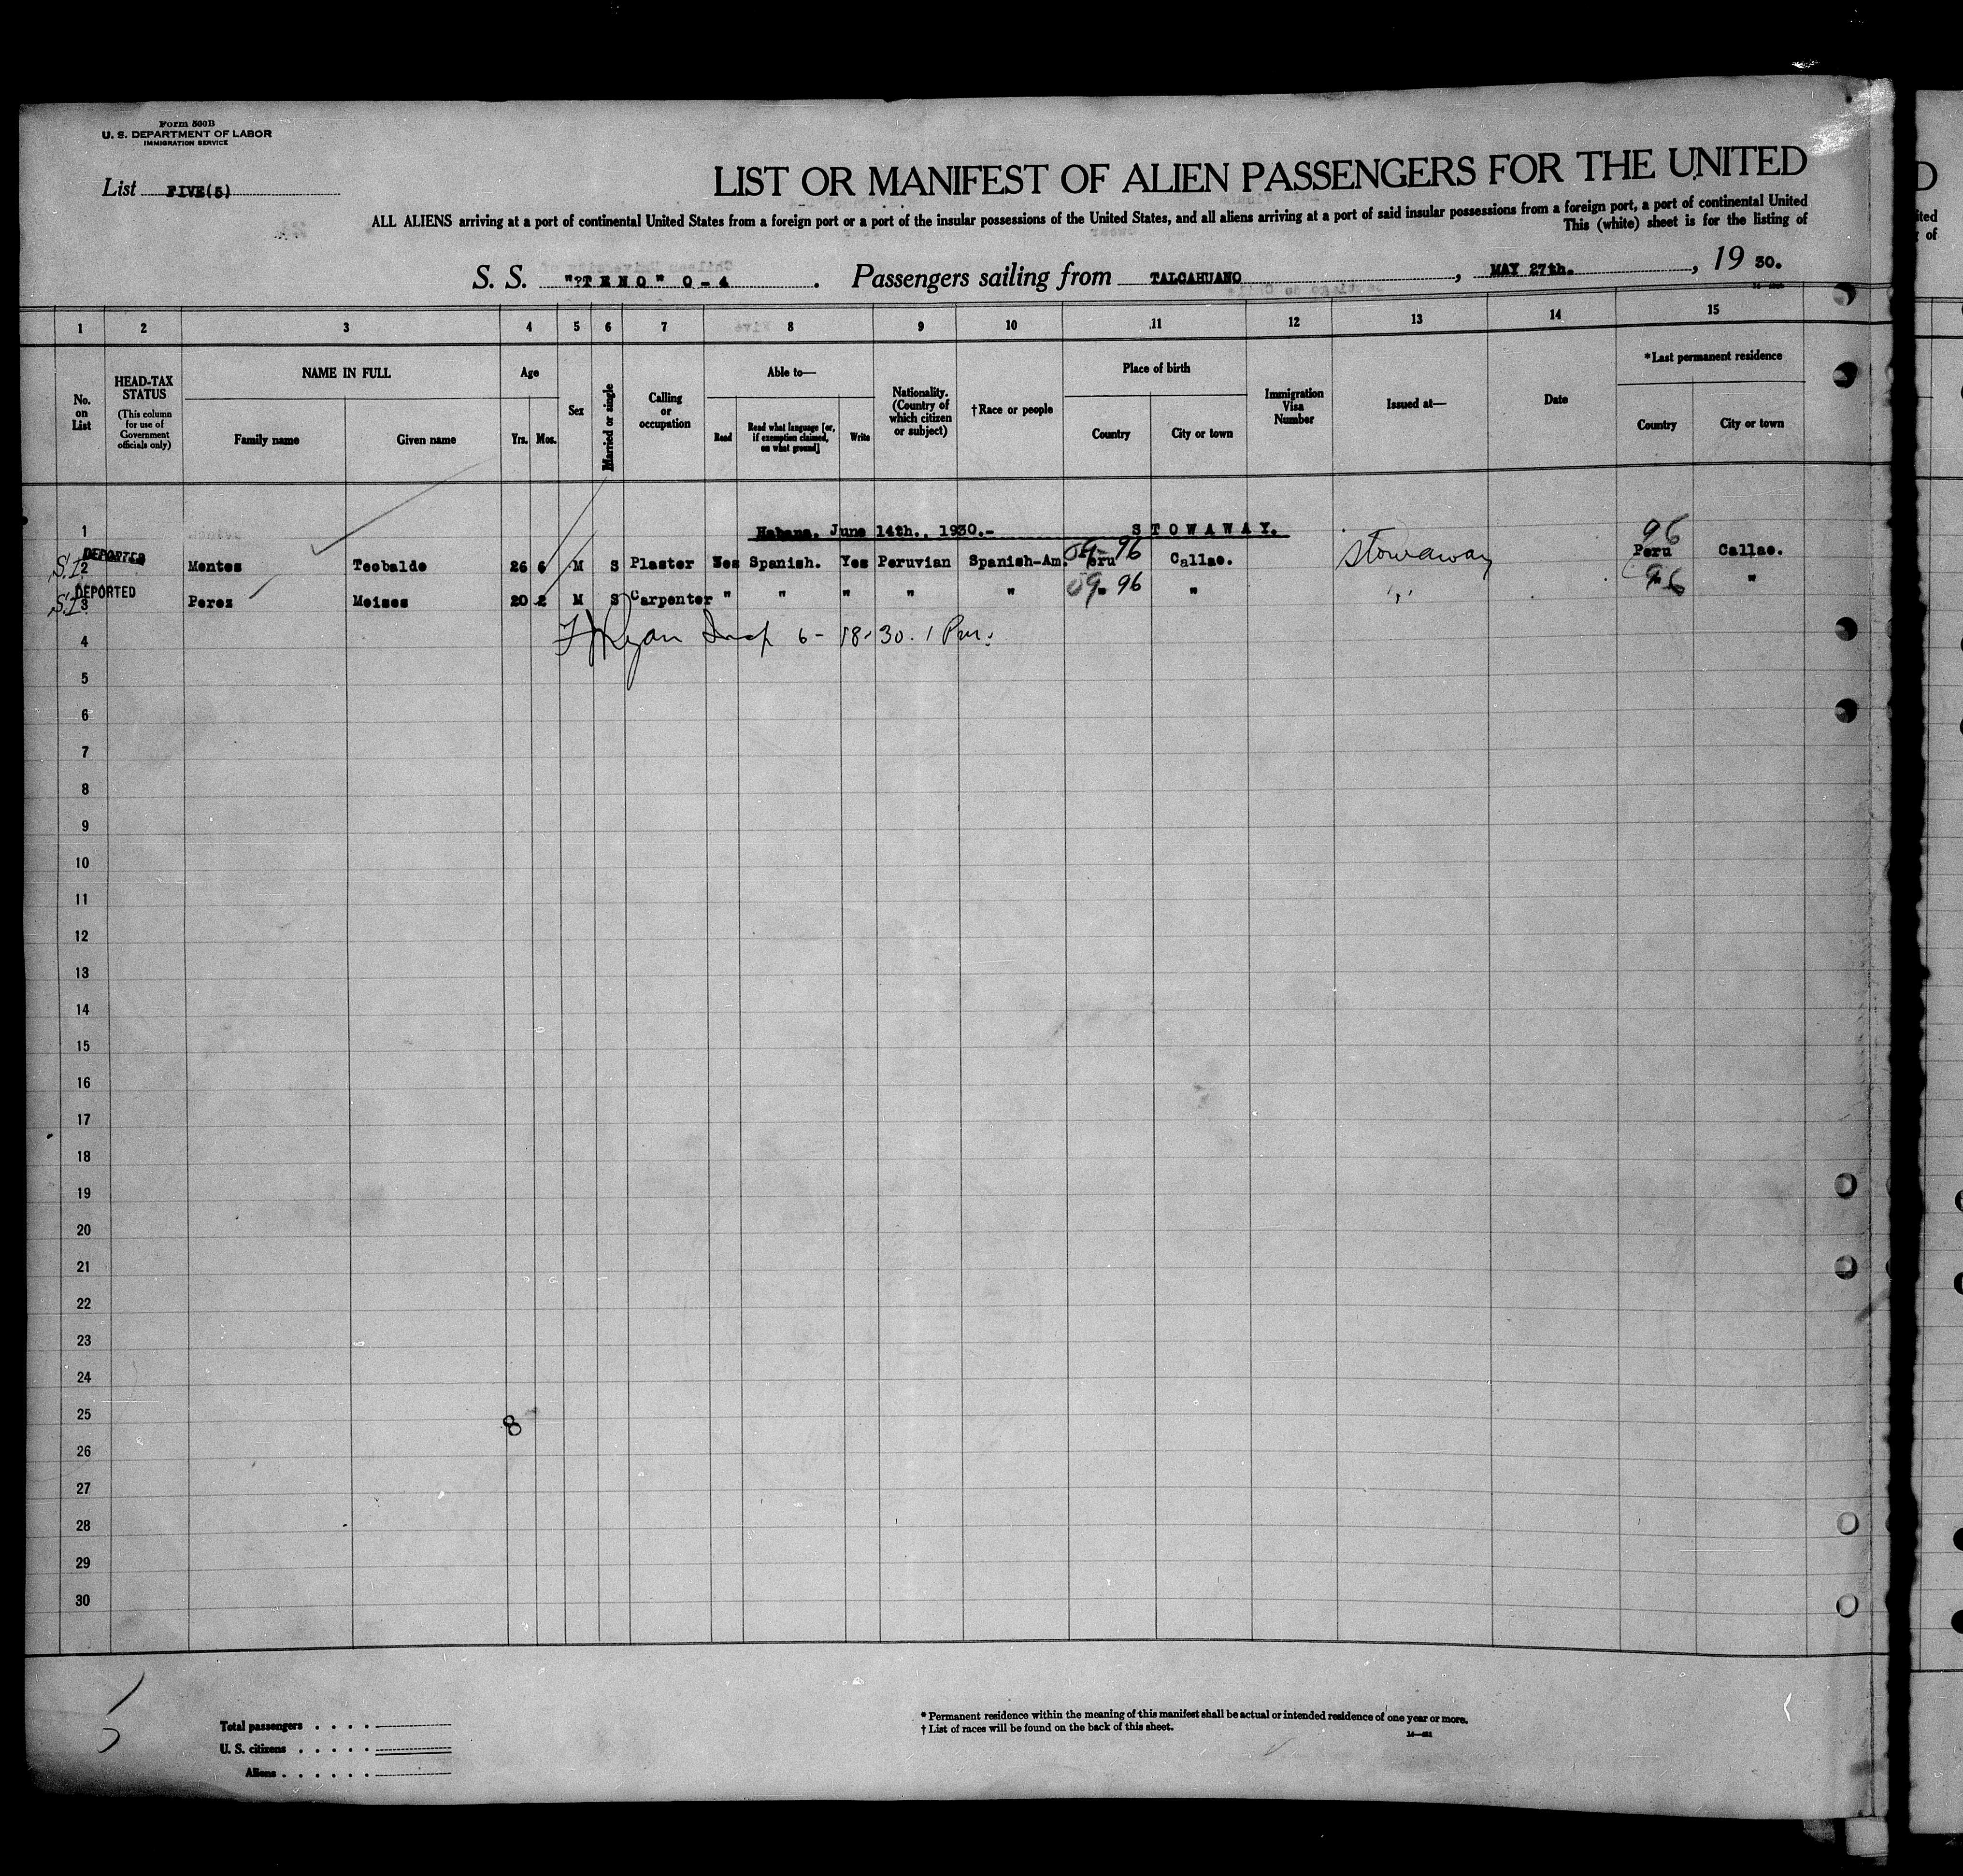 Form 500B
U. S. DEPARTMENT OF LABOR
IMMIGRATION SERVICE
List FIVE(5)
LIST OR MANIFEST OF ALIEN PASSENGERS FOR THE UNITED
ALL ALIENS arriving at a port of continental United States from a foreign port or a port of the insular possessions of the United States, and all aliens arriving at a port of said insular possessions from a foreign port, a port of continental United
This (white) sheet is for the listing of
S. S. "?TENO" O-4 . Passengers sailing from TALCAHUANO , MAY 27th. , 19 30.
1 2 3 4 5 6 7 8 9 10 11 12 13 14 15
No. on List
HEAD-TAX STATUS
(This column for use of Government officials only)
NAME IN FULL
Family name
Given name
Age
Yrs. Mos.
Sex
Married or single
Calling or occupation
Able to—
Read
Read what language [or, if exemption claimed, on what ground]
Write
Nationality. (Country of which citizen or subject)
†Race or people
Place of birth
Country
City or town
Immigration Visa Number
Issued at—
Date
*Last permanent residence
Country
City or town
1 Habana, June 14th., 1930.- STOWAWAY.
96
S.I. DEPORTED
2 Montes Teobaldo 26 6 M S Plaster Yes Spanish. Yes Peruvian Spanish-Am. Peru 96 Callao. Stowaway Peru Callao.
S.I. DEPORTED
3 Perez Moises 20 2 M S Carpenter " " " " " 09 " 96 " " 96 "
4 Ryan Insp 6-18-30. 1 Pm.
5
6
7
8
9
10
11
12
13
14
15
16
17
18
19
20
21
22
23
24
25
8
26
27
28
29
30
Total passengers
U. S. citizens
Aliens
* Permanent residence within the meaning of this manifest shall be actual or intended residence of one year or more.
† List of races will be found on the back of this sheet.